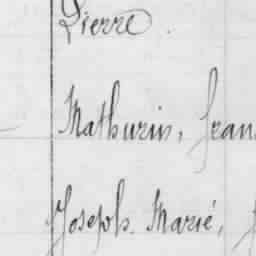 Pierre.
Mathurin, fran
Joseph. Marié,